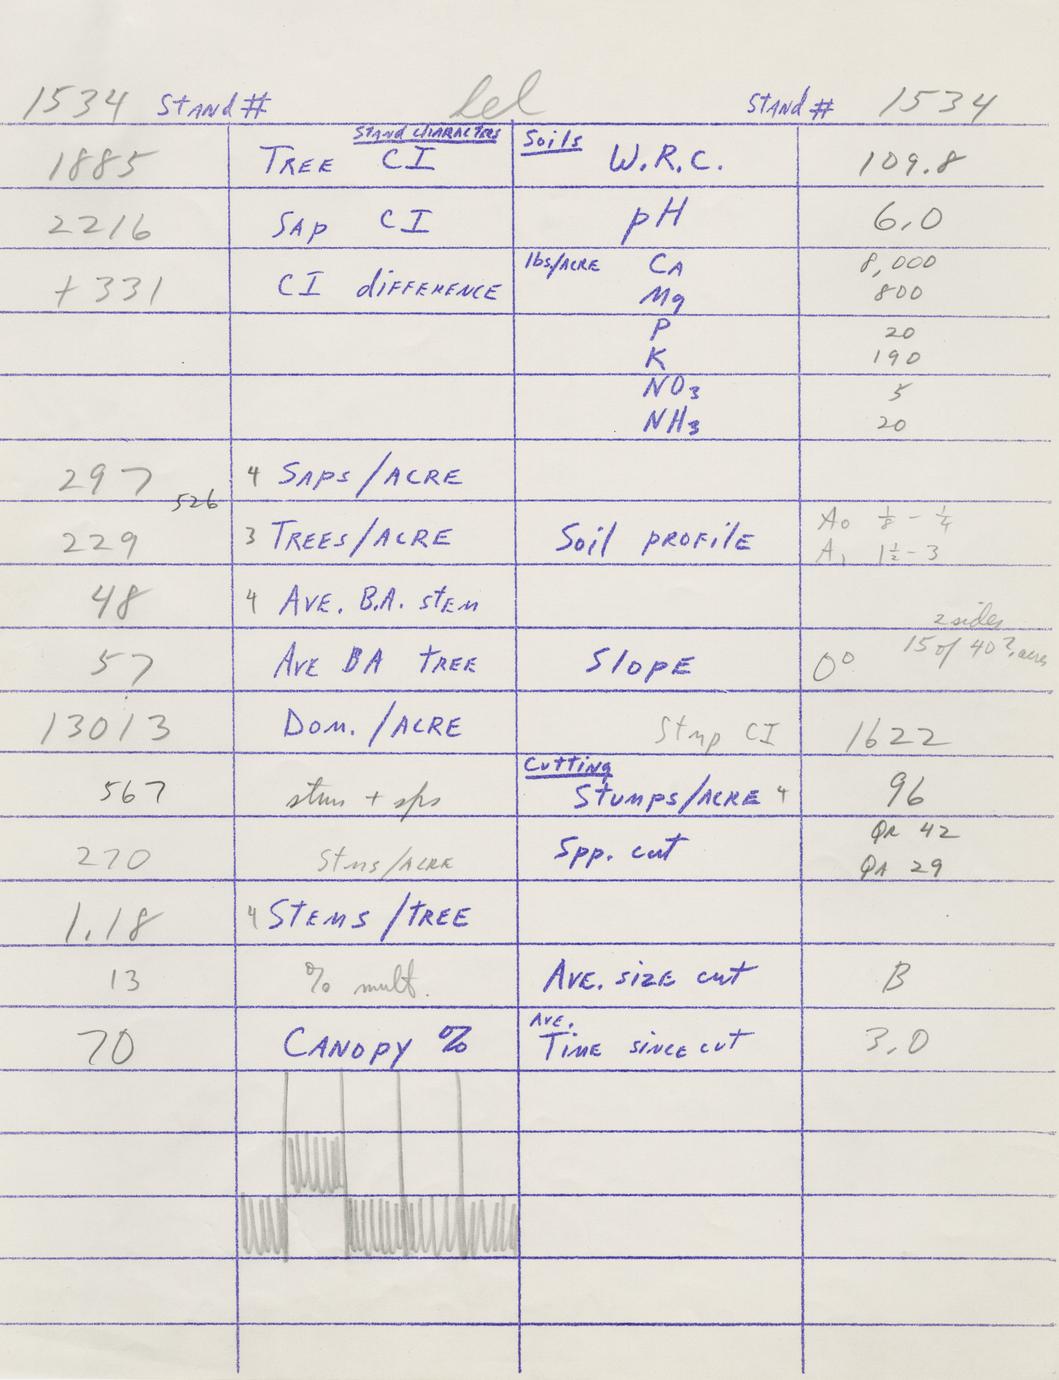 1534 Stand # lel Stand # 1534
Stand Characters Soils
1885 Tree CI W.R.C. 109.8
2216 Sap CI pH 6.0
+331 CI difference lbs/Acre Ca 8,000
Mg 800
P 20
K 190
NO3 5
NH3 20
297 4 Saps/Acre
526
229 3 Trees/Acre Soil profile A0 1/8 - 1/4
A1 1 1/2 - 3
48 4 Ave. B.A. stem
57 Ave BA tree Slope 0° 2 sides
15 of 40?. acres
13013 Dom./Acre Stmp CI 1622
Cutting
567 stms + sps Stumps/Acre 4 96
270 Stms/Acre Spp. cut QR 42
QA 29
1.18 4 Stems/tree
13 % mult. Ave. size cut B
70 Canopy % Ave. Time since cut 3.0